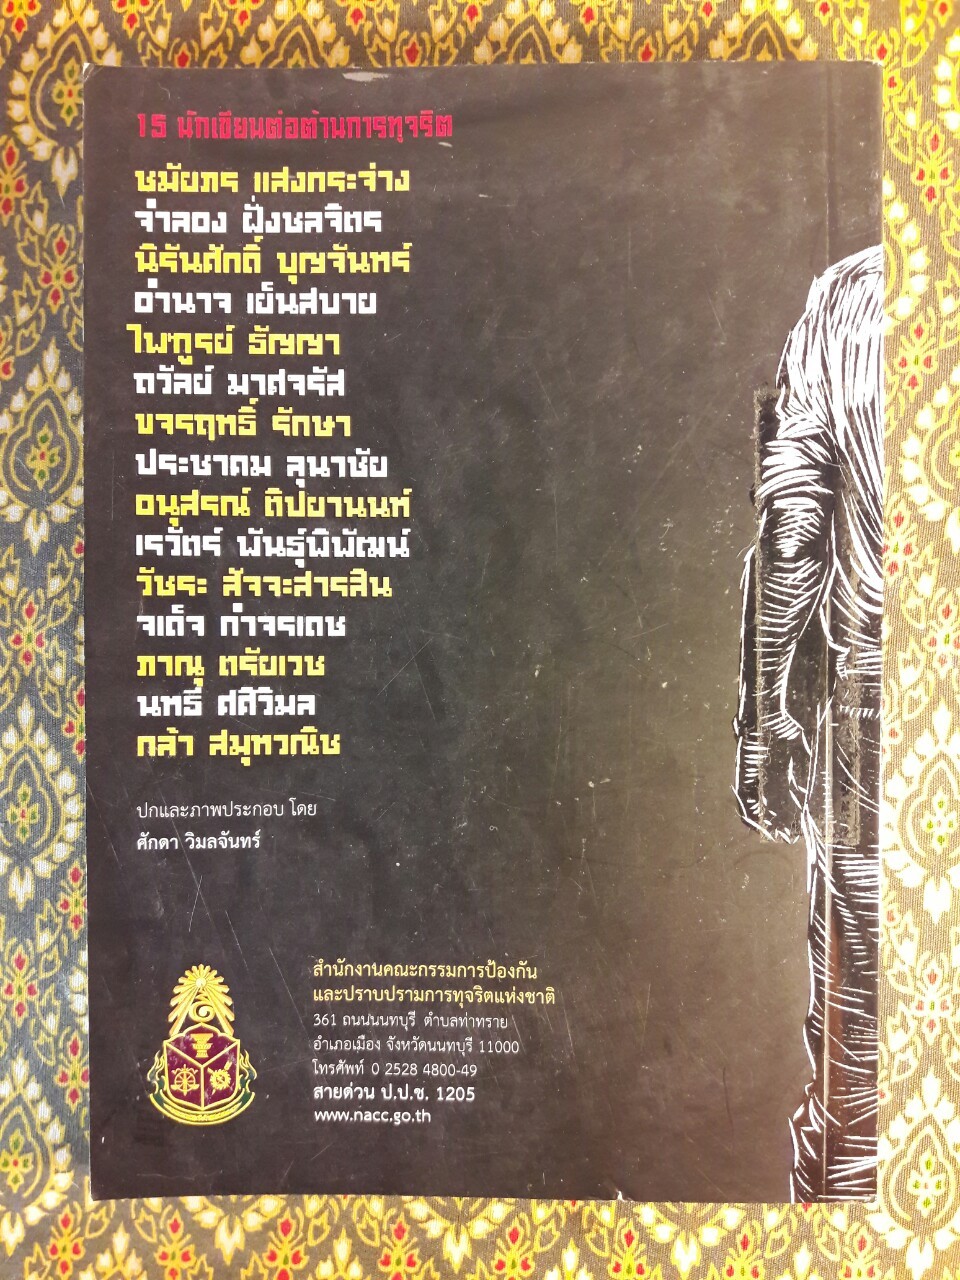 15 นักเขียนต่อต้านการทุจริต
ชมัยภร แสงกระจ่าง
จำลอง ฝั่งชลจิตร
นิรันศักดิ์ บุญจันทร์
อำนาจ เย็นสบาย
ไพฑูรย์ ธัญญา
ถวัลย์ มาศจรัส
ขจรฤทธิ์ รักษา
ประชาคม ลุนาชัย
อนุสรณ์ ติปยานนท์
เรวัตร์ พันธุ์พิพัฒน์
วัชระ สัจจะสารสิน
จเด็จ กำจรเดช
ภาณุ ตรัยเวช
นทธี ศศิวิมล
กล้า สมุทวณิช
ปกและภาพประกอบ โดย
ศักดา วิมลจันทร์
สำนักงานคณะกรรมการป้องกัน
และปราบปรามการทุจริตแห่งชาติ
361 ถนนนนทบุรี ตำบลท่าทราย
อำเภอเมือง จังหวัดนนทบุรี 11000
โทรศัพท์ 0 2528 4800-49
สายด่วน ป.ป.ช. 1205
www.nacc.go.th